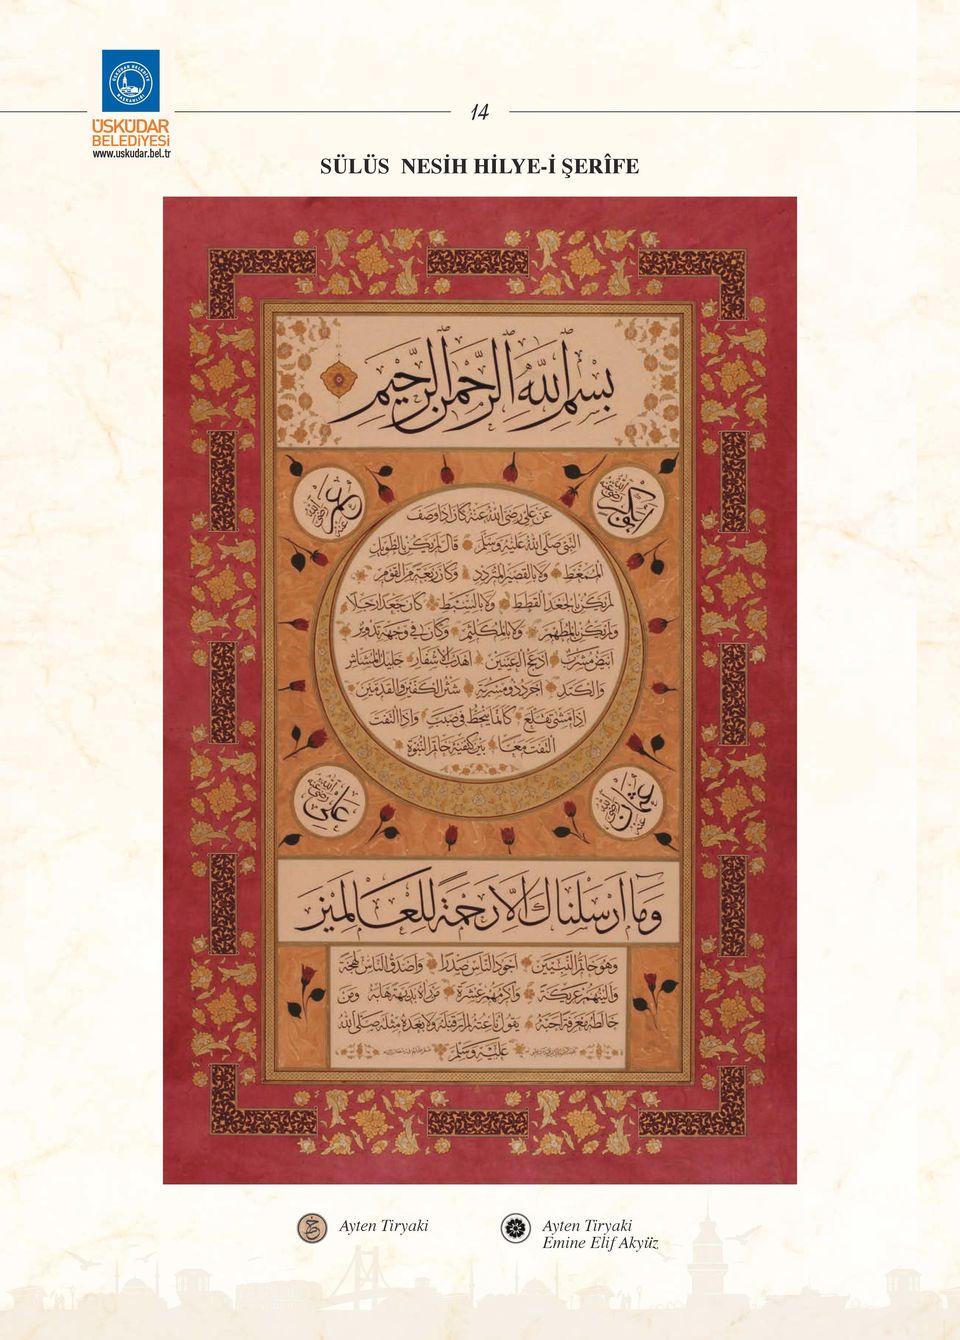 ÜSKÜDAR BELEDİYE BAŞKANLIĞI
ÜSKÜDAR
BELEDİYESİ
www.uskudar.bel.tr
14
SÜLÜS NESİH HİLYE-İ ŞERÎFE
بسم الله الرحمن الرحيم
عمر رضي الله عنه
ابو بكر رضي الله عنه
عن علي رضي الله عنه كان اذا وصف
النبي صلى الله عليه وسلم قال لم يكن بالطويل
الممغط ولا بالقصير المتردد وكان ربعة من القوم
لم يكن بالجعد القطط ولا بالسبط كان جعدا رجلا
ولم يكن بالمطهم ولا بالمكلثم وكان في وجهه تدوير
ابيض مشرب ادعج العينين اهدب الاشفار جليل المشاش
والكتد اجرد ذو مسربة شثن الكفين والقدمين
اذا مشى تقلع كانما ينحط في صبب واذا التفت
التفت معا بين كتفيه خاتم النبوة
علي رضي الله عنه
عثمان رضي الله عنه
وما ارسلناك الا رحمة للعالمين
وهو خاتم النبيين اجود الناس صدرا واصدق الناس لهجة
والينهم عريكة واكرمهم عشرة من رآه بديهة هابه ومن
خالطه معرفة احبه يقول ناعته لم ار قبله ولا بعده مثله صلى الله
عليه وسلم
Ayten Tiryaki
Ayten Tiryaki
Emine Elif Akyüz